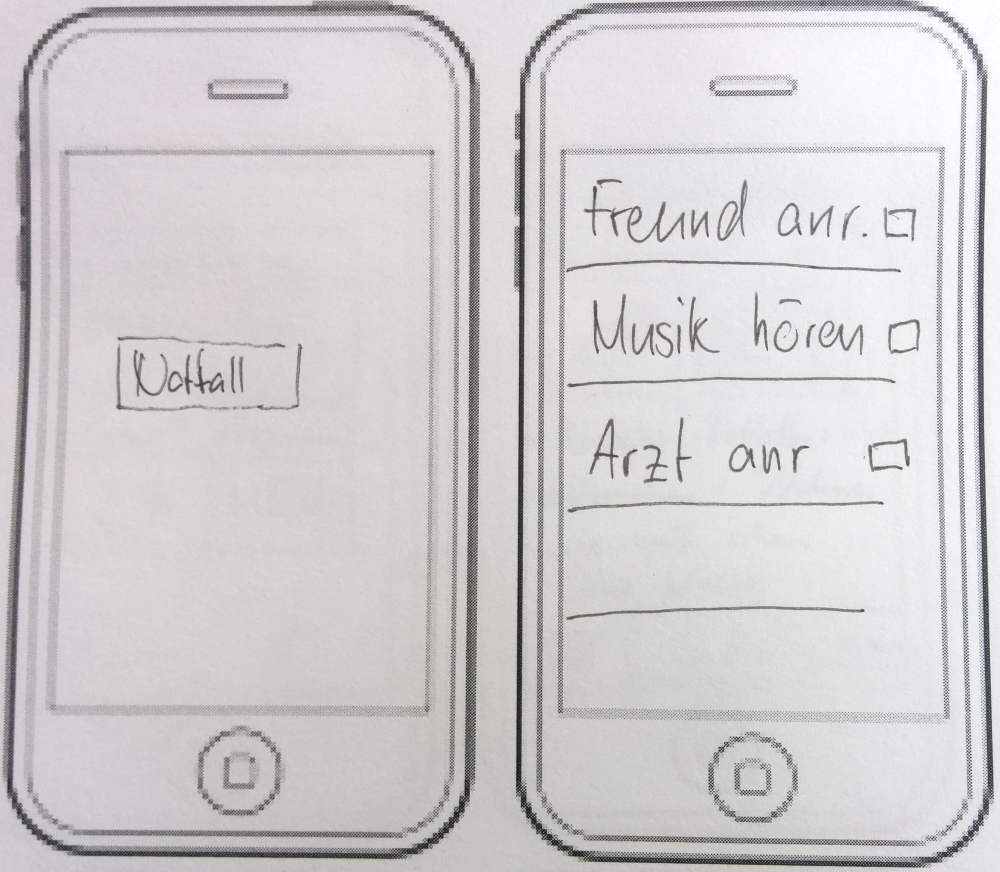 Notfall
Freund anr.
Musik hören
Arzt anr